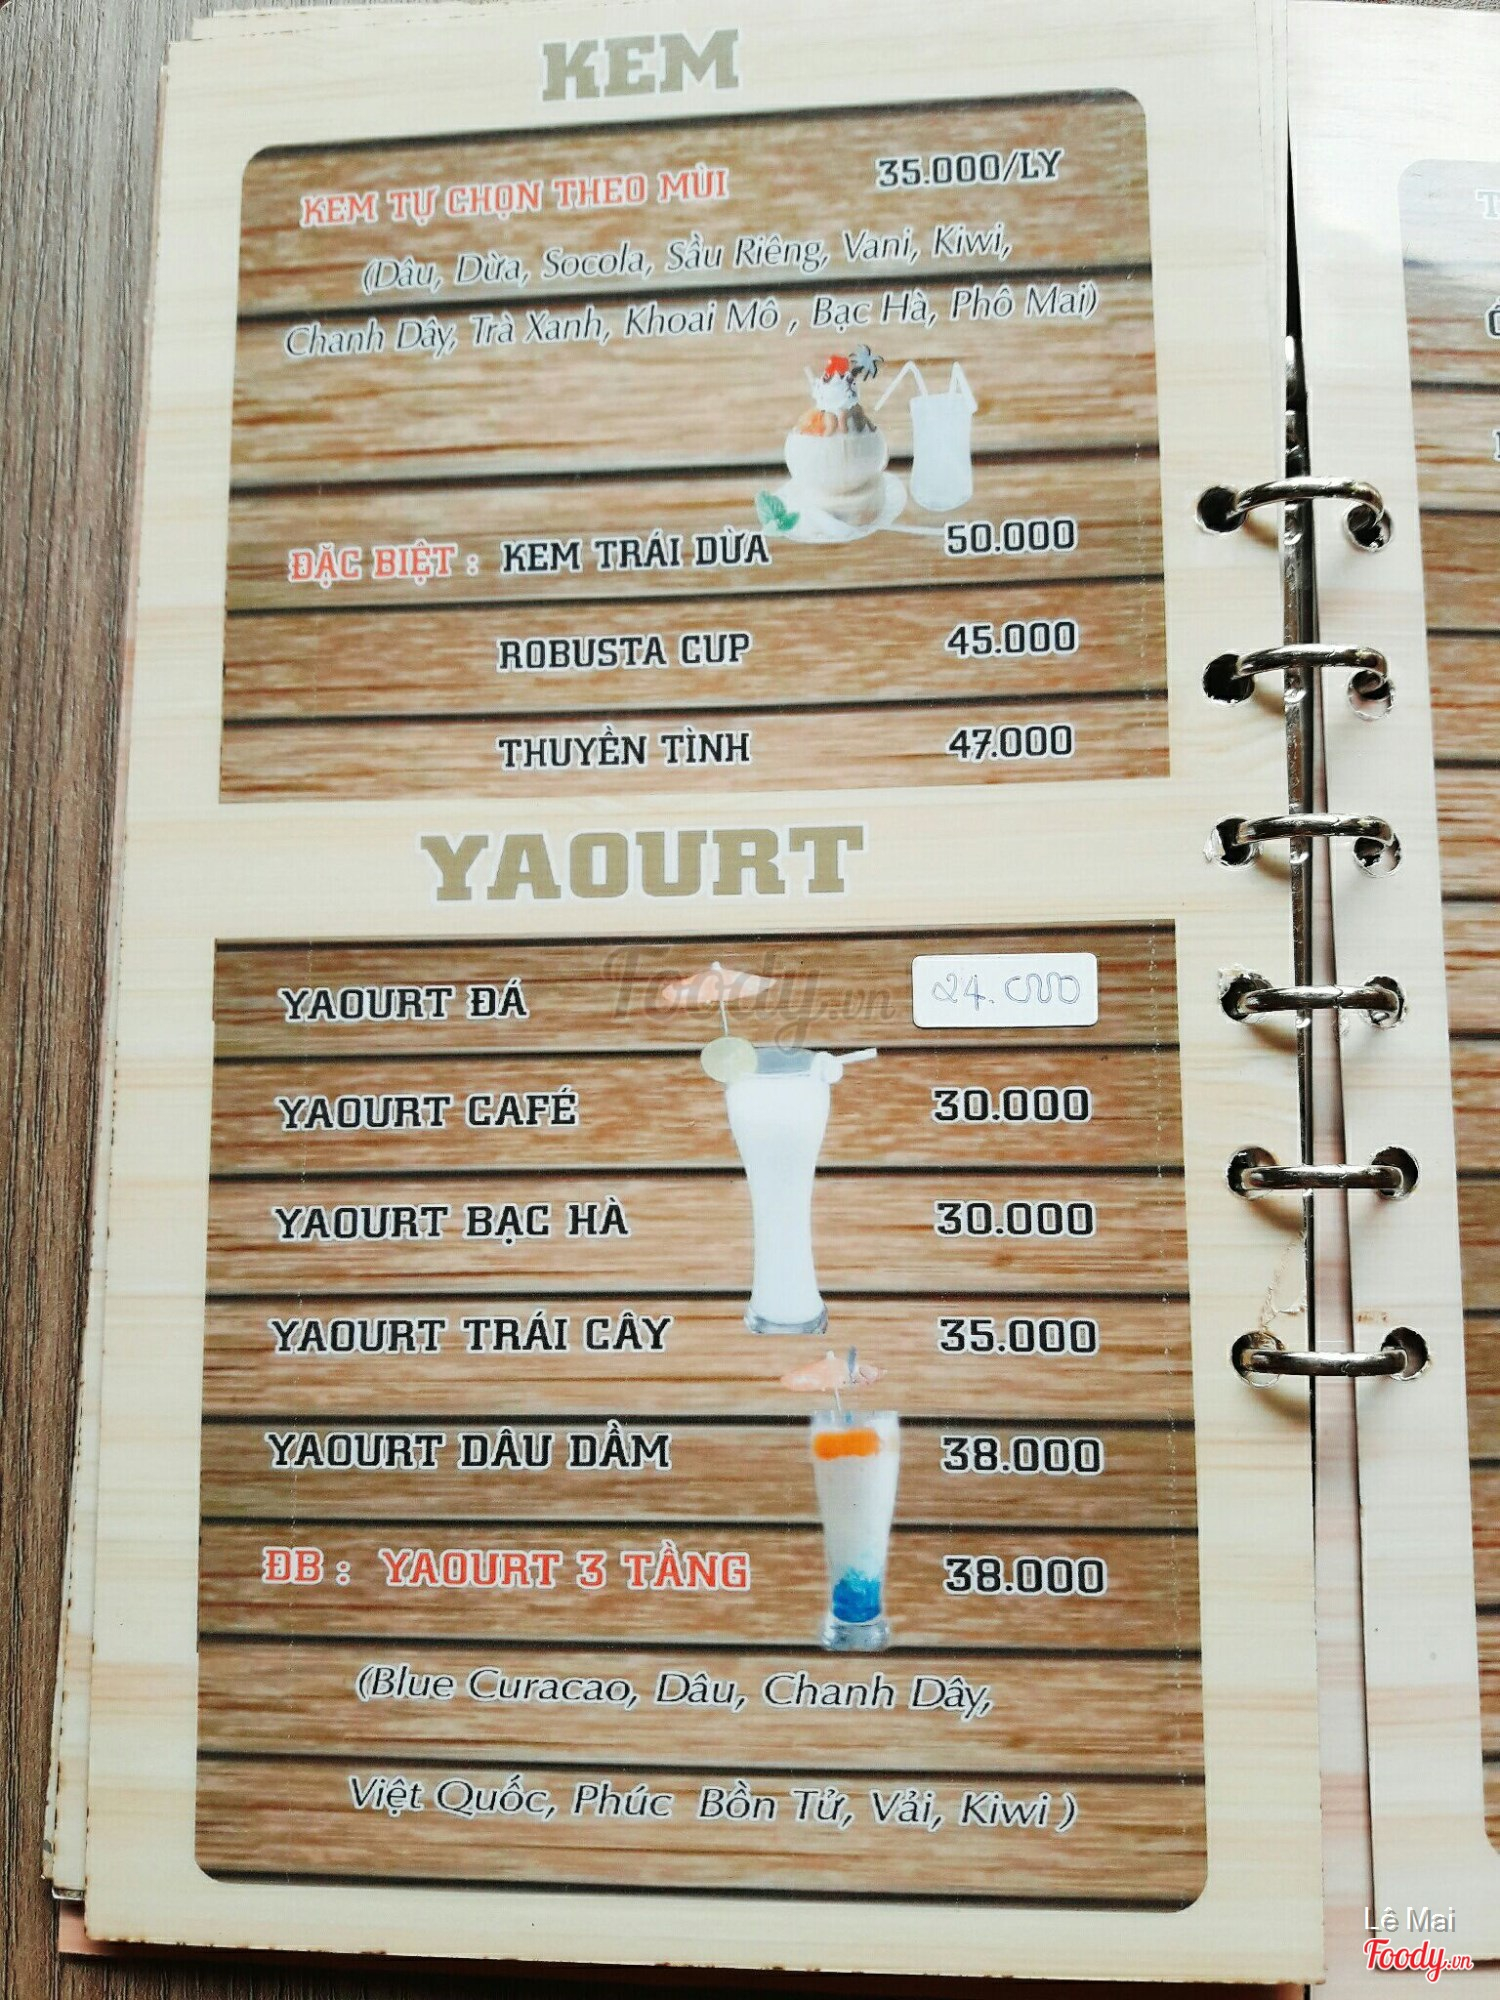 KEM
KEM TỰ CHỌN THEO MÙI 35.000/LY
(Dâu, Dừa, Socola, Sầu Riêng, Vani, Kiwi,
Chanh Dây, Trà Xanh, Khoai Mô , Bạc Hà, Phô Mai)
ĐẶC BIỆT : KEM TRÁI DỪA 50.000
ROBUSTA CUP 45.000
THUYỀN TÌNH 47.000
YAOURT
YAOURT ĐÁ 24.000
YAOURT CAFÉ 30.000
YAOURT BẠC HÀ 30.000
YAOURT TRÁI CÂY 35.000
YAOURT DÂU DẦM 38.000
ĐB : YAOURT 3 TẦNG 38.000
(Blue Curacao, Dâu, Chanh Dây,
Việt Quốc, Phúc Bồn Tử, Vải, Kiwi )
Foody.vn
Lê Mai
Foody.vn